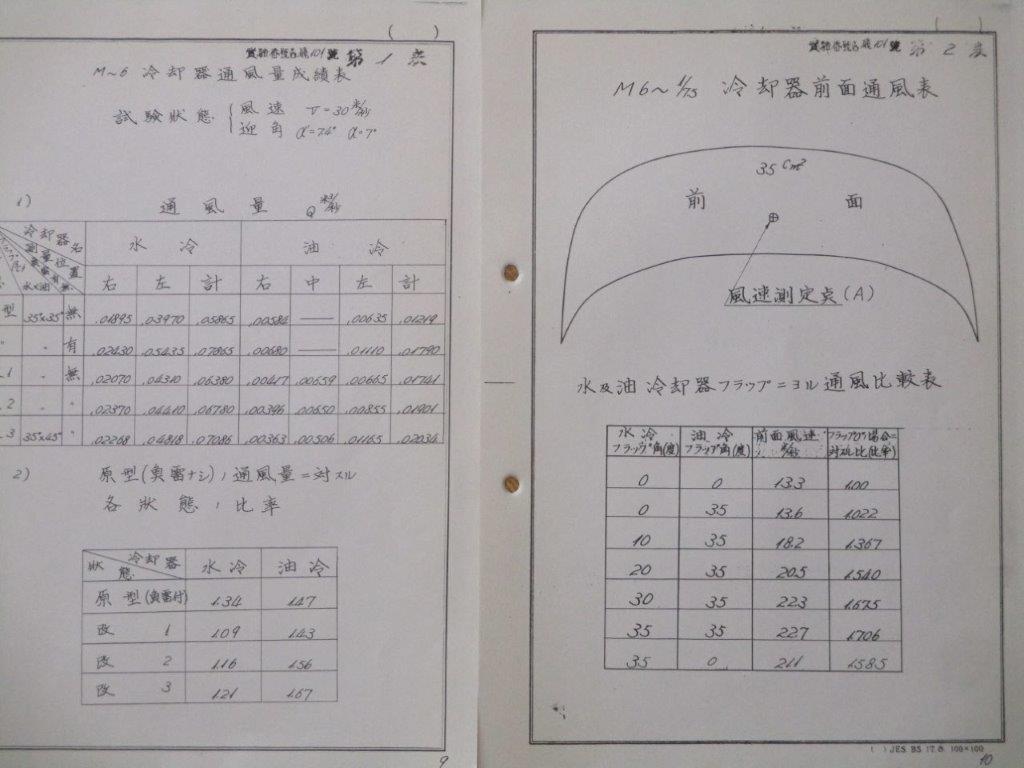 (　　)
第 1 表
M~6 冷却器通風量成績表
試験狀態 { 風速 V=30 米/秒
迎角 α=7.4° α=7°
1) 通風量 Q 米³/秒
冷却器名
測量位置
水冷 油冷
右 左 計 右 中 左 計
型 35°×35° 無 .01895 .03970 .05865 .00584 —— .00635 .01219
〃 〃 有 .02430 .05435 .07865 .00680 —— .01110 .01790
1 〃 無 .02070 .04310 .06380 .00417 .00659 .00665 .01741
2 〃 〃 .02370 .04410 .06780 .00396 .00650 .00855 .01901
3 35°×45° 〃 .02268 .04818 .07086 .00363 .00506 .01165 .02034
2) 原型(魚雷ナシ)ノ通風量ニ対スル
各狀態ノ比率
狀態 冷却器 水冷 油冷
原型(魚雷付) 1.34 1.47
改 1 1.09 1.43
改 2 1.16 1.56
改 3 1.21 1.67
9
(　　)
第 2 表
M6~1/7.5 冷却器前面通風表
35 cm²
前 面
風速測定点(A)
水及油冷却器フラップニヨル通風比較表
水冷フラップ角(度) 油冷フラップ角(度) 前面風速 米/秒 フラップ0°ノ場合ニ対スル比(比率)
0 0 13.3 1.00
0 35 13.6 1.022
10 35 18.2 1.367
20 35 20.5 1.540
30 35 22.3 1.675
35 35 22.7 1.706
35 0 21.1 1.585
(　) JES. BS 17.6 100×100
10